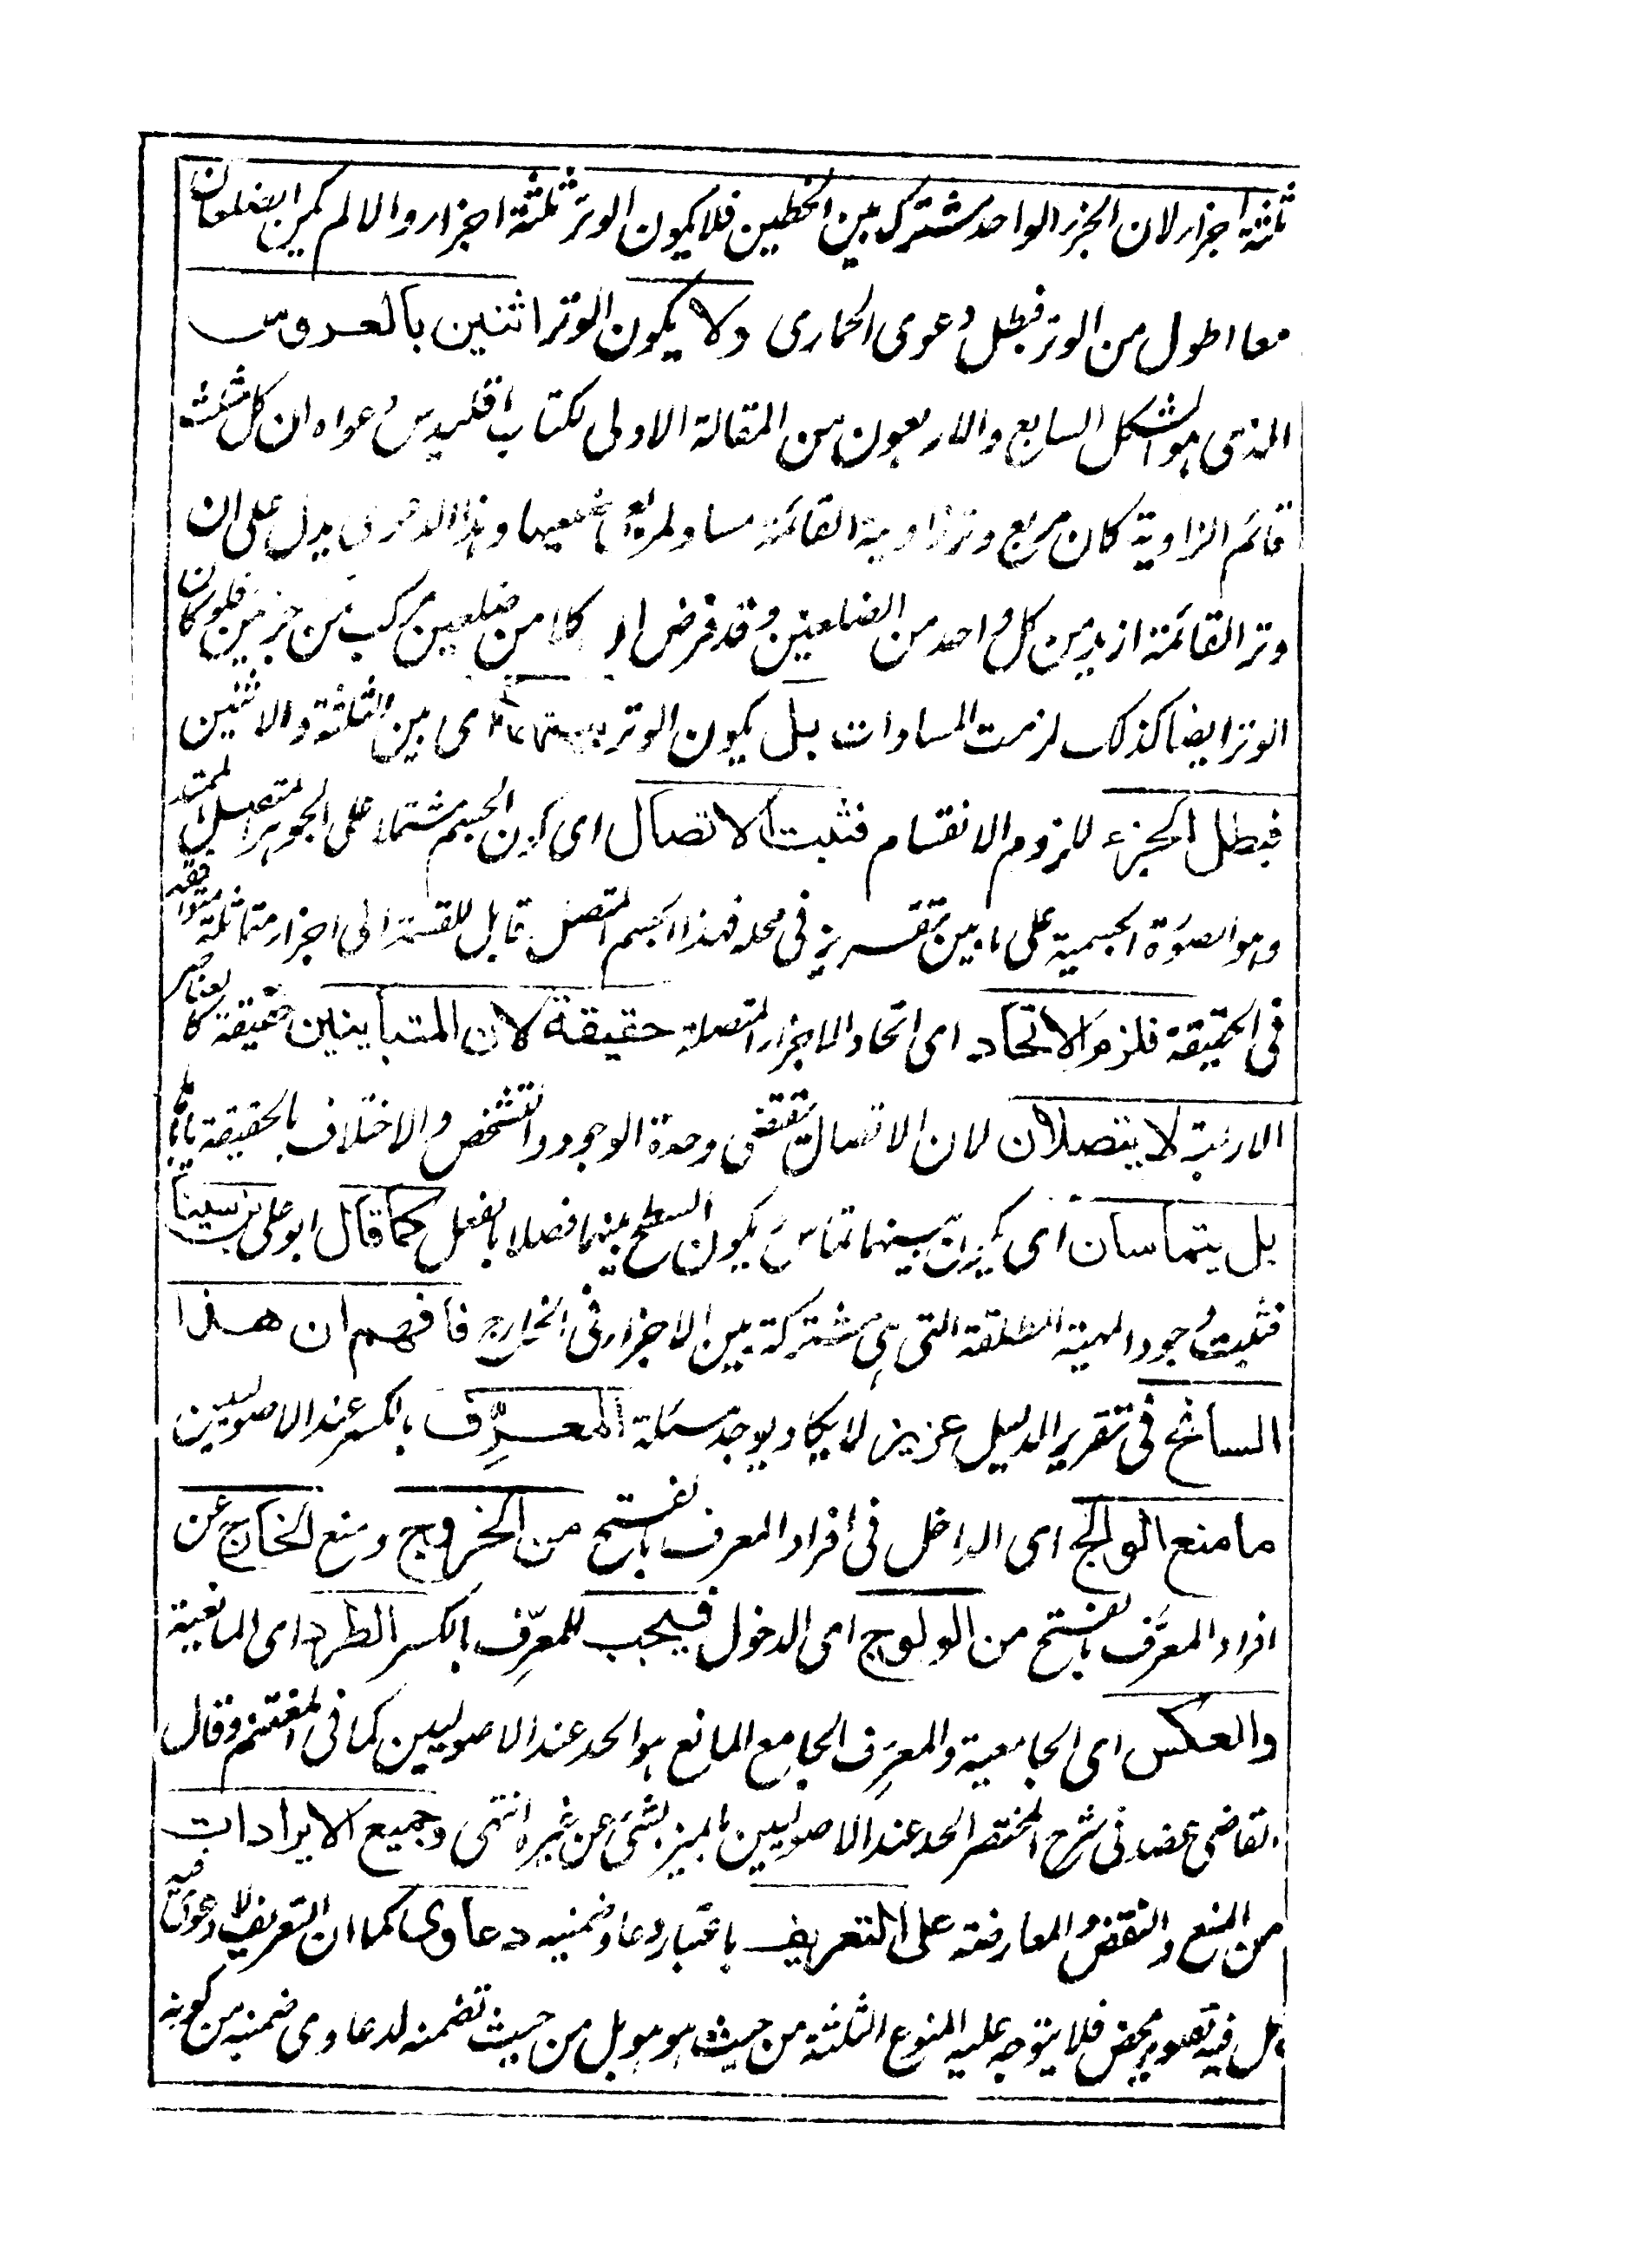 ثلثة اجزاء لان الجزء الواحد مشترك بين الخطين فلا يكون الوتر ثلثة اجزاء والا لم يكن الضلعان
معا اطول من الوتر فبطل دعوى الحمارى ولا يكون الوتر اثنين بالعروس
الذى هو الشكل السابع والاربعون من المقالة الاولى لكتاب اقليدس دعواه ان كل مثلث
قائم الزاوية كان مربع وتر زاوية القائمة مساو لمربعى ضلعيها وهذا الدعوى يدل على ان
وتر القائمة ازيد من كل واحد من الضلعين وقد فرض ان كلا من ضلعين مركب من جزئين فلو كان
الوتر ايضا كذلك لزمت المساوات بل يكون الوتر بينهما اى بين الثلثة والاثنين
فبطل الجزء للزوم الانقسام فثبت الاتصال اى كون الجسم مشتملا على الجوهر المتصل الممتد
وهو الصورة الجسمية على ما بين تقريره فى محله فهذا الجسم المتصل قابل للقسمة الى اجزاء متماثلة متوافقة
فى الحقيقة فلزم الاتحاد اى اتحاد الاجزاء المتصلة حقيقة لان المتباينين حقيقة كالعناصر
الاربعة لا يتصلان لان الاتصال يقتضى وحدة الوجود والتشخص والاختلاف بالحقيقة ياباه
بل يتماسان اى يكون بينهما تماس يكون السطح بينهما فصلا بالفعل كما قال ابو على بن سينا
فثبت وجود المهية المطلقة التى هى مشتركة بين الاجزاء فى الخارج فافهم ان هذا
السانح فى تقرير الدليل عزيز لا يكاد يوجد مسئلة المعرِّف بالكسر عند الاصوليين
ما منع الوالج اى الداخل فى افراد المعرف بالفتح من الخروج ومنع الخارج عن
افراد المعرَّف بالفتح من الولوج اى الدخول فيجب للمعرِّف بالكسر الطرد اى المانعية
والعكس اى الجامعية والمعرِف الجامع المانع هو الحد عند الاصوليين كما فى المغتنم وقال
القاضى عضد فى شرح المختصر الحد عند الاصوليين ما يميز الشئ عن غيره انتهى وجميع الايرادات
من المنع والنقض والمعارضة على التعريف باعتبار دعاو ضمنيه دعاوى كما ان التعريف لا دعوى فيه
بل فيه تصوير محض فلا يتوجه عليه المنوع الثلثة من حيث هو هو بل من حيث تضمنه لدعاوى ضمنيه من كونه